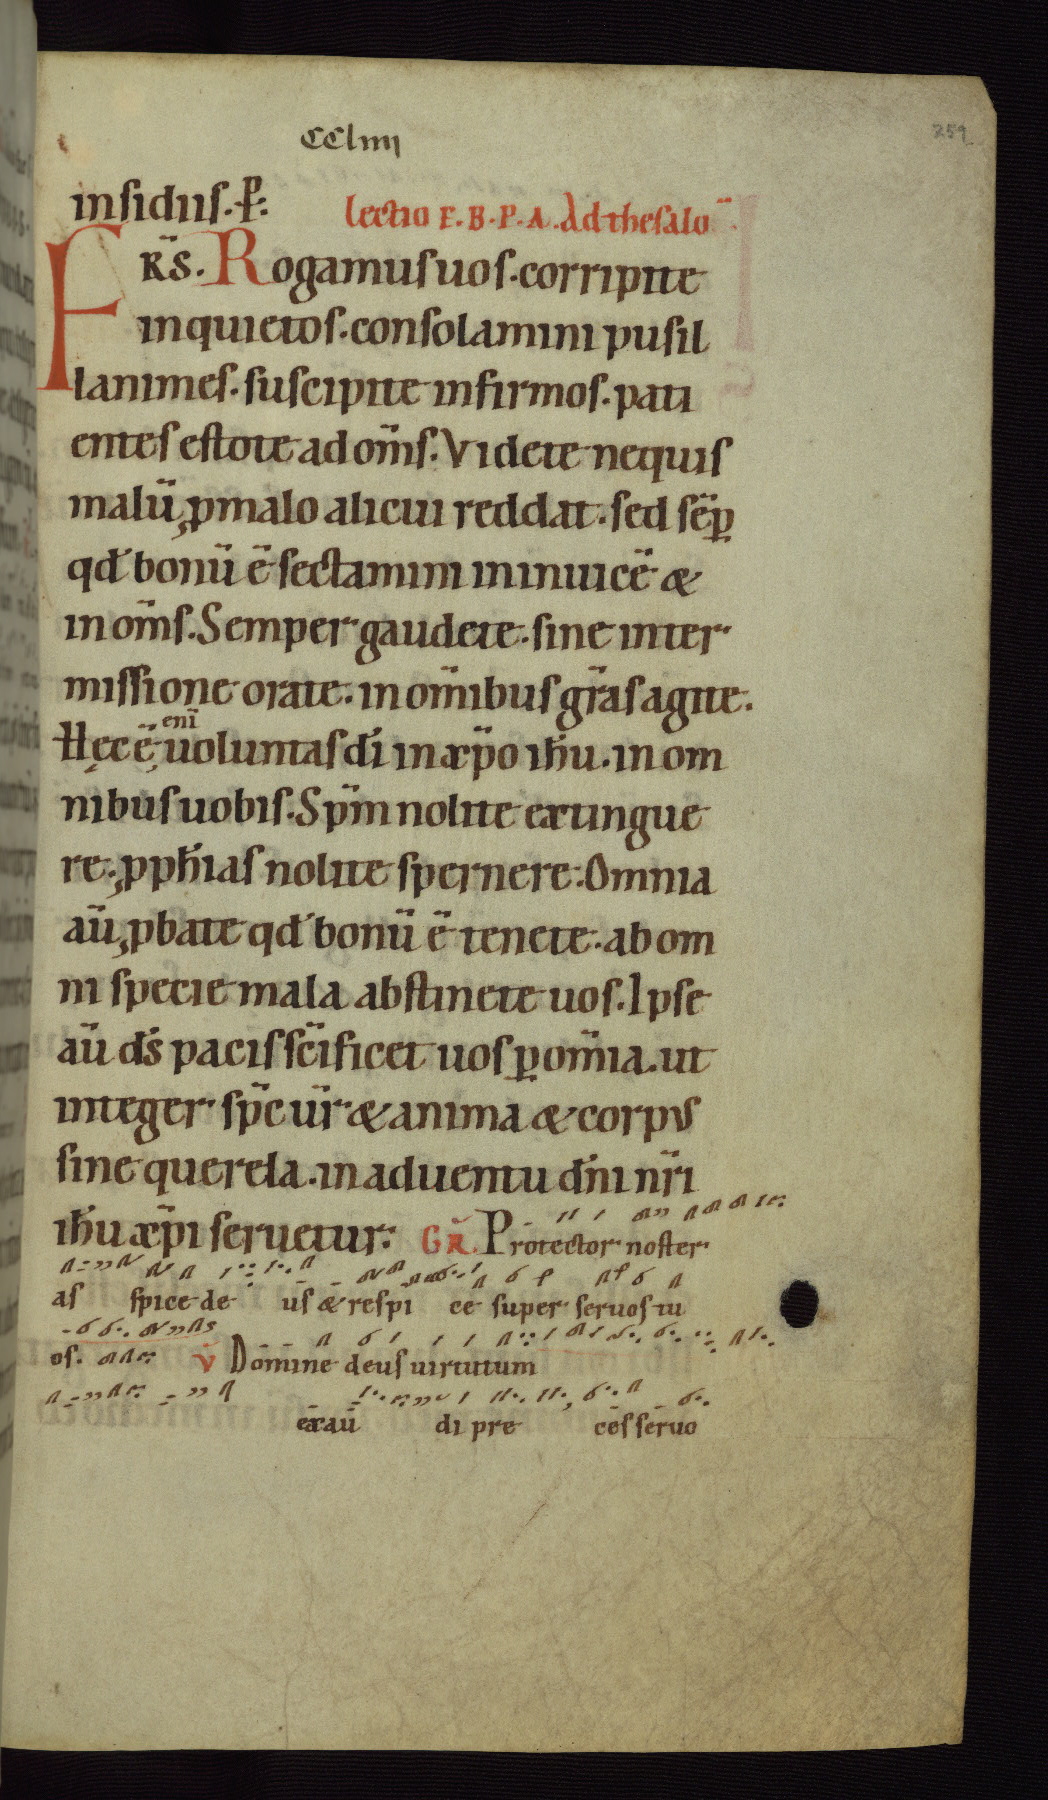 CCliiii
259
insidus. P̵:
lectio E. B. P. A. Ad thesalo¯.
FRS̄. Rogamus uos. corripite
inquietos. consolamini pusil
lanimes. suscipite infirmos. pati
entes estote ad om̄s. Videte nequis
malū ꝓ malo alicui reddat. sed sēꝑ
qđ bonū ē sectamini in inuicē &
in om̄s. Semper gaudete. sine inter
missione orate. in om̄ibus gr̄as agite.
Hęc ē enī uoluntas dī in xp̄o ih̄u. in om
nibus uobis. Sp̄m nolite extingue
re. ꝓph̄ias nolite spernere. Omnia
aū ꝓbate qđ bonū ē tenete. ab om
ni specie mala abstinete uos. Ipse
aū ds̄ pacis sc̄ificet uos ꝑ om̄ia. ut
integer sp̄c ur̄ & anima & corpus
sine querela. in aduentu dn̄i nr̄i
ih̄u xp̄i seruetur. GR̄. Protector noster
as pice de us & respi ce super seruos tu
os. v̄ Domine deus uirtutum
exau di pre ces seruo